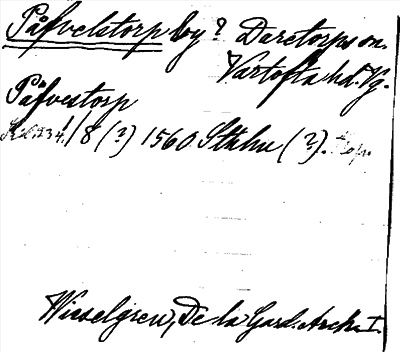 Påfvelstorp by? Daretorps sn.
Vartofta hd. Vg.
Påfvestorp
1/8 (?) 1560 Sthlm (?).
Wieselgren, De la Gard. Arch. I.